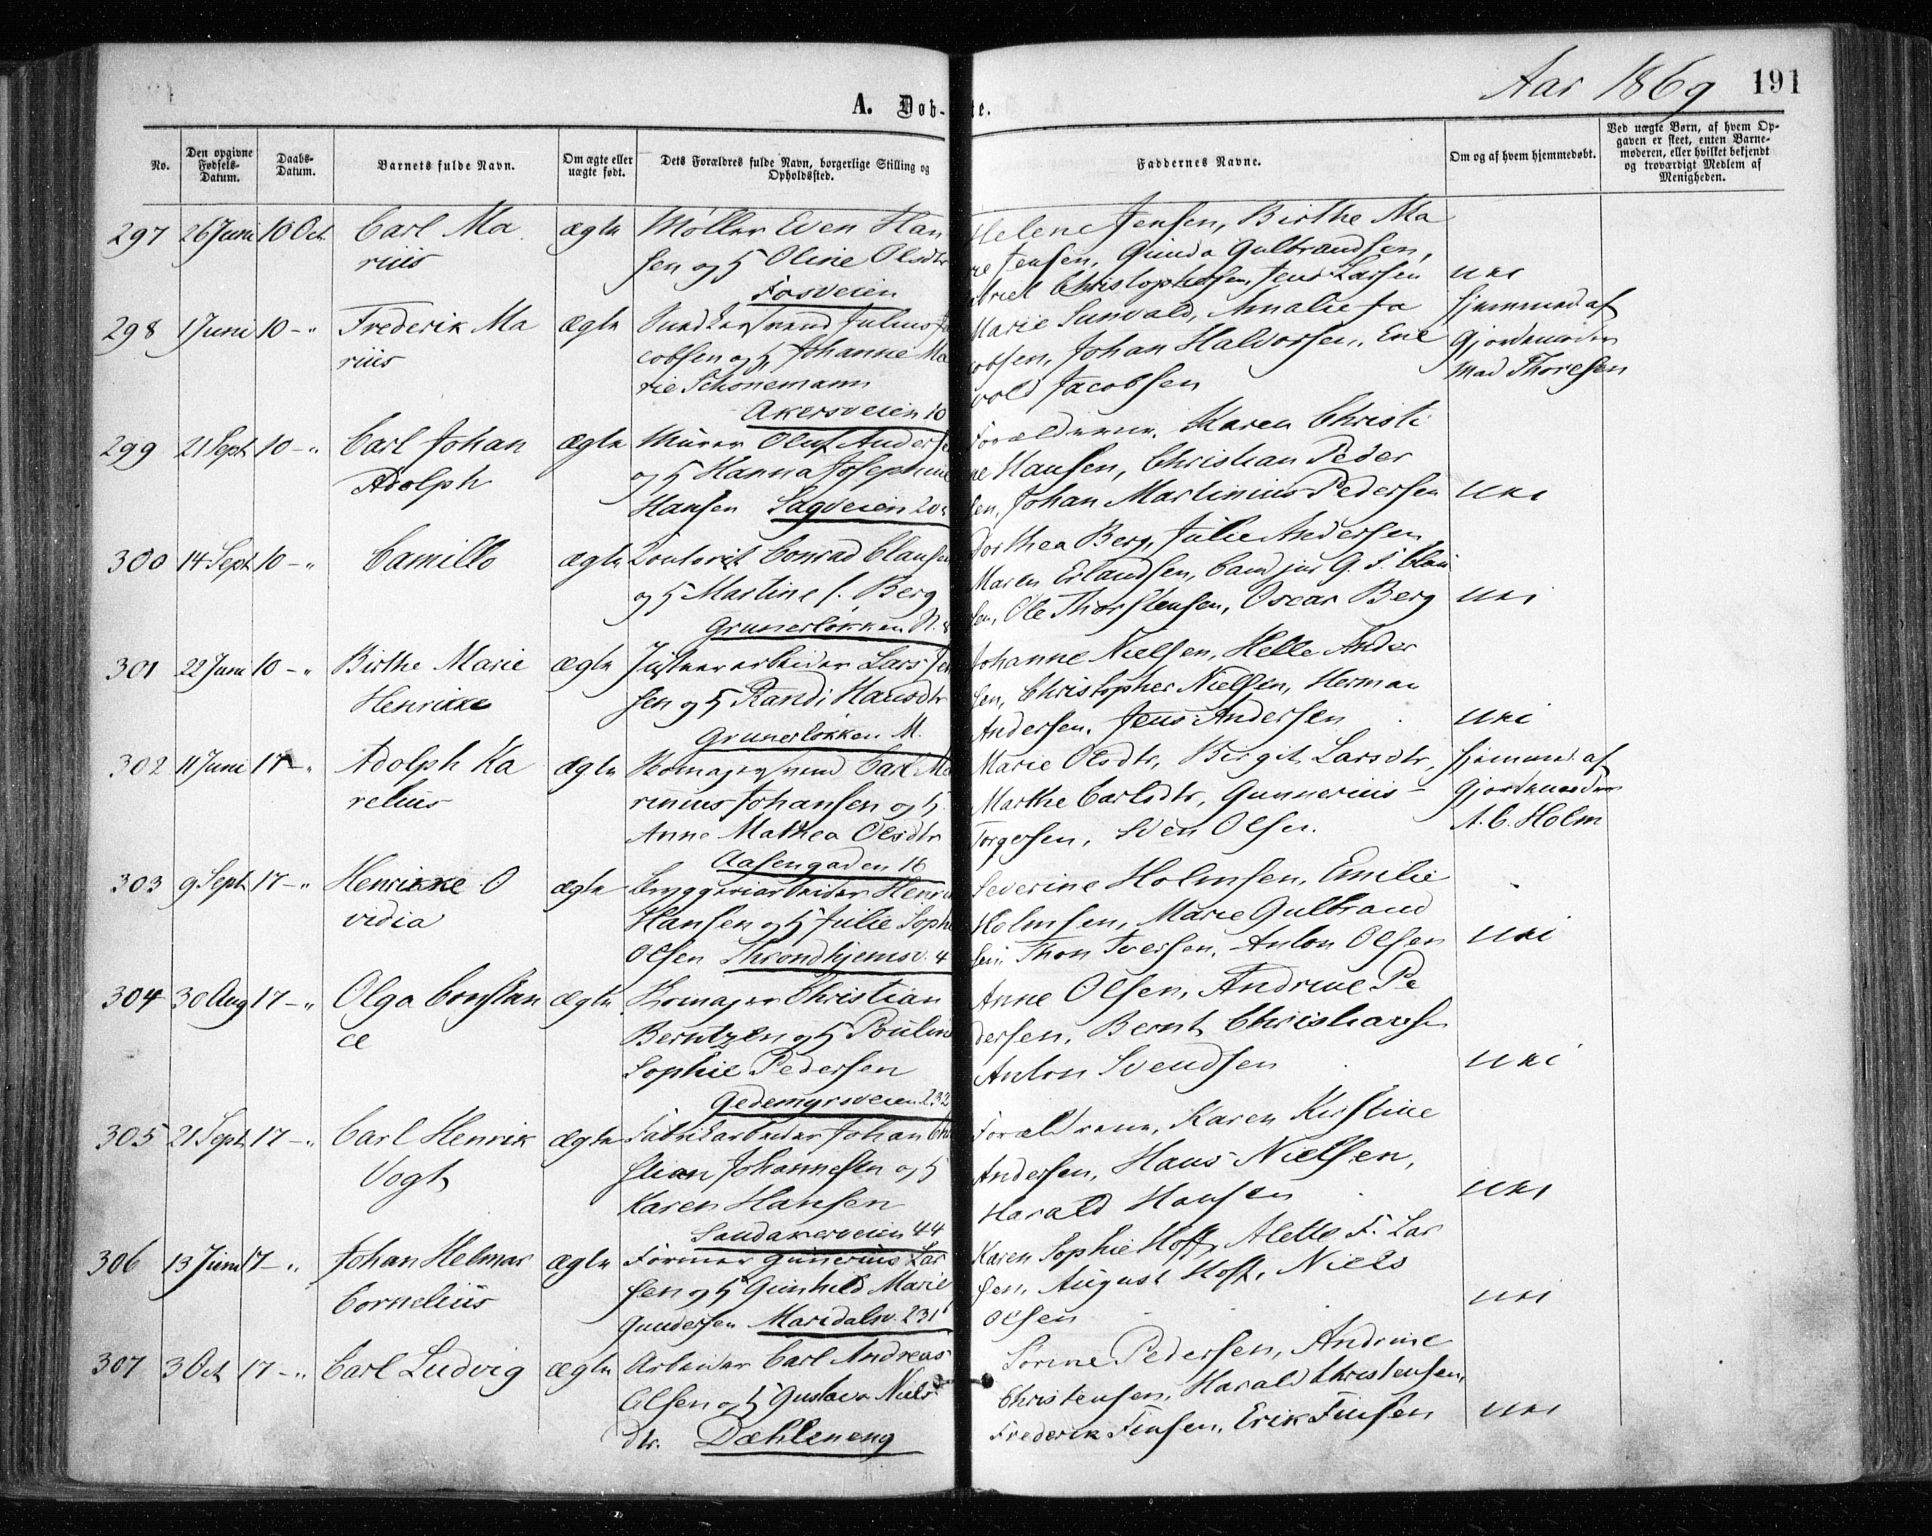 Aar 1869 191
A. Døb- te.
No.
Den opgivne Fødsels-Datum.
Daabs-Datum.
Barnets fulde Navn.
Om ægte eller uægte født.
Dets Forældres fulde Navn, borgerlige Stilling og Opholdssted.
Faddernes Navne.
Om og af hvem hjemmedøbt.
Ved uægte Børn, af hvem Opgaven er skeet, enten Barnemoderen, eller hvilket bekjendt og troværdigt Medlem af Menigheden.
297 26 Juni 10 Oct. Carl Ma ægte Møller Even Han Helene Jensen, Birthe Ma
rius sen og H Oline Olsdtr Jensen, Gunda Gulbrandsen,
Fosveien Christophersen, Jens Larsen
298 1 Juni 10 - " Frederik Ma ægte Julius Marie Sunvald, Amalie Ja Hjemmed af
rius cobsen og H Johanne Ma Johan Halvorsen, Gjordemoder
rie Schønemann Jacobsen Mad Thoresen
Akersveien 10
299 21 Sept 10 - " Carl Johan ægte Murer Oluf Anderse Forældrene, Karen Christi
Adolph og H Hanna Josephine ne Hansen, Christian Peder
Hansen Sagveien 20 sen, Johan Martinius Pedersen
300 14 Sept 10 - " Camillo ægte Conrad Clausen Dorthea Berg, Julie Andersen
og H Martine f. Berg Maren Erlandsen, Cand jur G. S. Clau
Grunerløkken N. sen, Ole Thorstensen, Oscar Berg
301 22 Juni 10 - " Birthe Marie ægte arbeider Lars Jen Johanne Nielsen, Helle Ander
Henrikke sen og H Randi Hansdtr sen, Christopher Nielsen, Herman
Grunerløkken M. Andersen, Jens Andersen
302 11 Juni 17 - " Adolph Ka ægte Skomagersvend Carl Ma Marie Olsdtr, Birgit Larsdtr, Hjemmed af
relius rinius Johansen og H Marthe Carlsdtr, Gunnerius Gjordemoder
Anne Mathea Olsdtr Torgersen, Sven Olsen. A. C. Holm
Aasengaden 16
303 9 Sept 17 - " Henrikke O ægte Bryggeriarbeider Henrik Severine Holmsen, Emilie
vidia Hansen og H Julie Soph Holmsen, Marie Gulbrand
Olsen Throndhjemsv. 4 sen, Thon Iversen, Anton Olsen
304 30 Aug 17 - " Olga Constan ægte Skomager Christian Anne Olsen, Andrine Pe
ce Berntzen og H Pouline dersen, Bernt Christiansen
Sophie Pedersen Anton Svendsen
Gedemyrsveien 232
305 21 Sept 17 - " Carl Henrik ægte Fabrikarbeider Johan Chri Forældrene, Karen Kirstine
Vogt stian Johannesen og H Andersen, Hans Nielsen,
Karen Hansen Harald Hansen
Sandakerveien 44
306 13 Juni 17 - " Johan Helmar ægte Former Gunerius Lar Karen Sophie Hoff, Alette F. Lar
Cornelius sen og H Gunhild Marie sen, August Hoff, Niels
Gundersen Maridalsv. 231 Olsen
307 3 Oct 17 - " Carl Ludvig ægte Arbeider Carl Andreas Sørine Pedersen, Andrine
Olsen og H Gustava Niels Christensen, Harald Christensen,
dtr. Dæhleneng Frederik Finsen, Erik Finsen